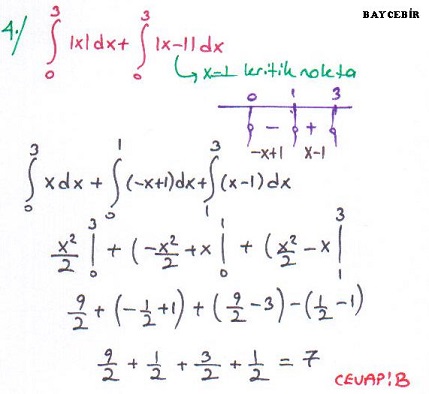 BAYCEBİR
4-/ ∫₀³ |x|dx + ∫₀³ |x-1|dx
↳ x=1 kritik nokta
0 1 3
- +
-x+1 x-1
∫₀³ x dx + ∫₀¹ (-x+1)dx + ∫₁³ (x-1)dx
x²/2 |₀³ + (-x²/2 + x |₀¹ + (x²/2 - x |₁³
9/2 + (-1/2 + 1) + (9/2 - 3) - (1/2 - 1)
9/2 + 1/2 + 3/2 + 1/2 = 7
CEVAP:B